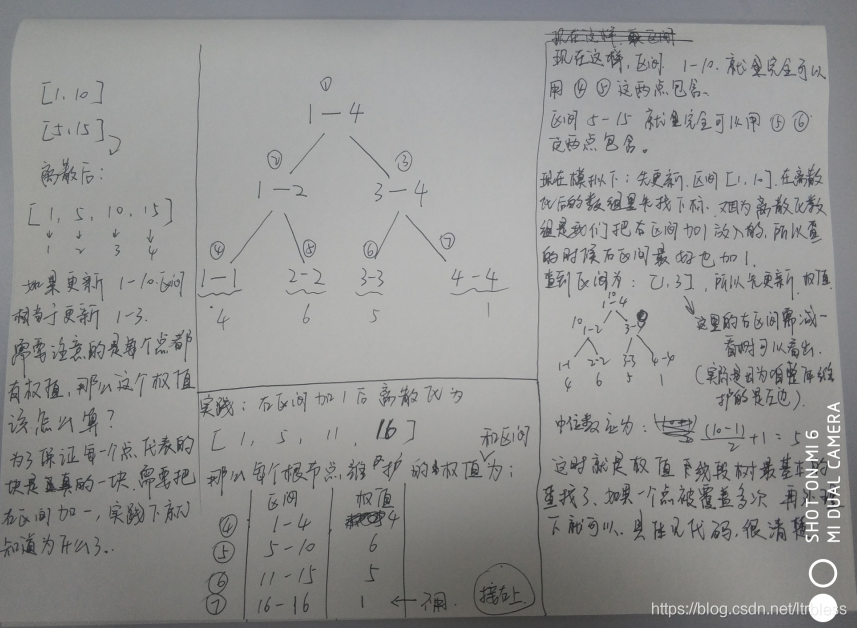 [1, 10]
[5, 15]
离散后:
[1, 5, 10, 15]
1 2 3 4
如果更新 1-10 区间
相当于更新 1-3.
需要注意的是每个点都
有权值, 那么这个权值
该怎么算?
为了保证每一个点代表的
块是真的一块, 需要把
右区间加一, 实践下就
知道为什么了..
①
1—4
② ③
1—2 3—4
④ ⑤ ⑥ ⑦
1—1 2-2 3-3 4-4
4 6 5 1
实践: 右区间加1后离散化为
[1, 5, 11, 16]
和区间
那么每个根节点维护的权值为:
区间 权值
④ 1-4 4
⑤ 5-10 6
⑥ 11-15 5
⑦ 16-16 1 ← 不用.
接右上
现在这样, 区间 1-10. 就是完全可以
用 ④ ⑤ 这两点包含.
区间 5-15 就是完全可以用 ⑤ ⑥
这两点包含。
现在模拟下: 先更新, 区间 [1, 10]. 在离散
化后的数组里先找下标. 又因为离散化数
组是我们把右区间加1放入的, 所以查
的时候右区间最好也加1.
查到区间为: [1, 3], 所以先更新 权值.
10
1-4
10 1-2 3-
1-1 2-2 3-3 4-4
4 6 5 1
这里的右区间需减一
看树可以看出.
(实际是因为咱整体维
护的是左边).
中位数应为: (10-1)/2 + 1 = 5
这时就是权值下线段树最基本的
查找了. 如果一个点被覆盖多次 再
下就可以. 具体见代码, 很清楚
SHOT ON MI 6
MI DUAL CAMERA
https://blog.csdn.net/ltrbless